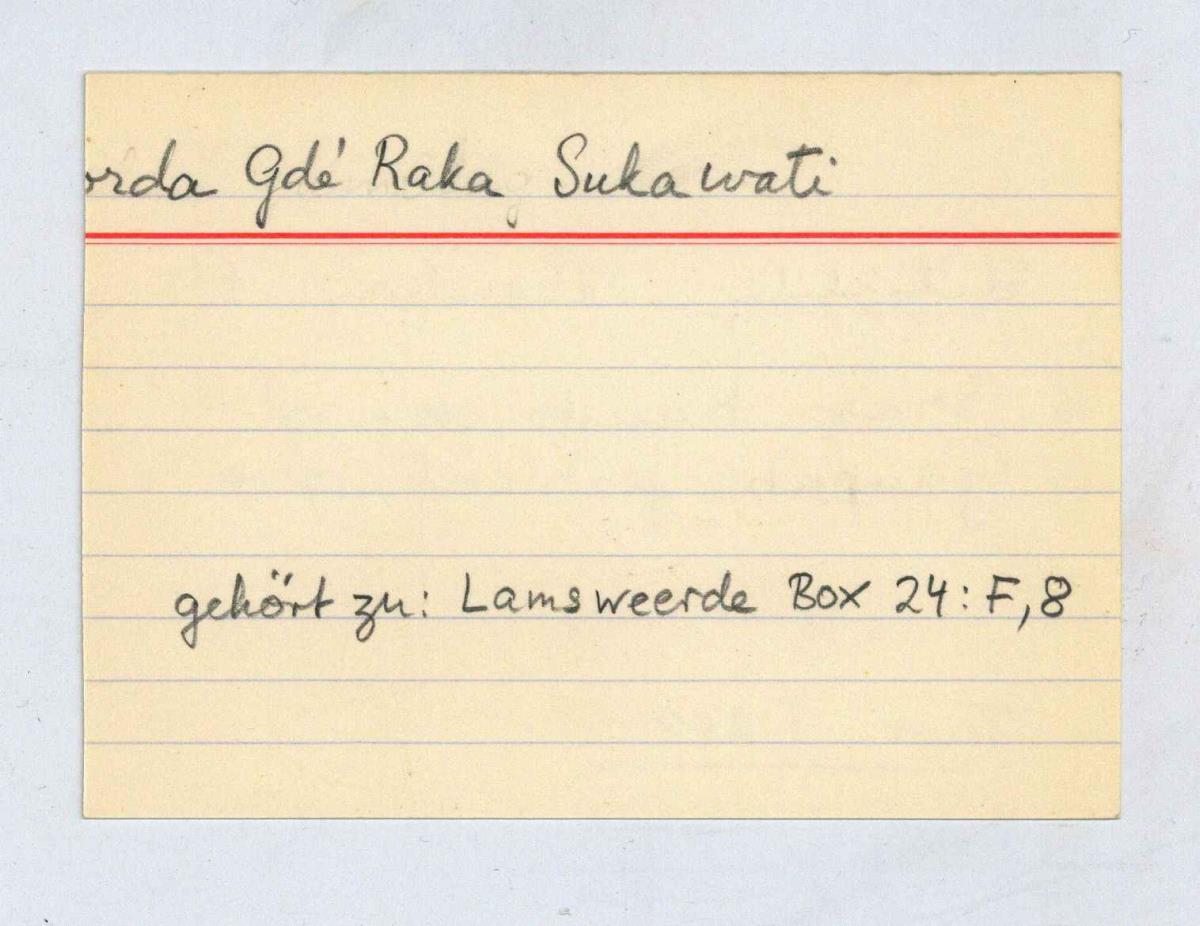 orda Gdé Raka Sukawati
gehört zu: Lamsweerde Box 24: F, 8